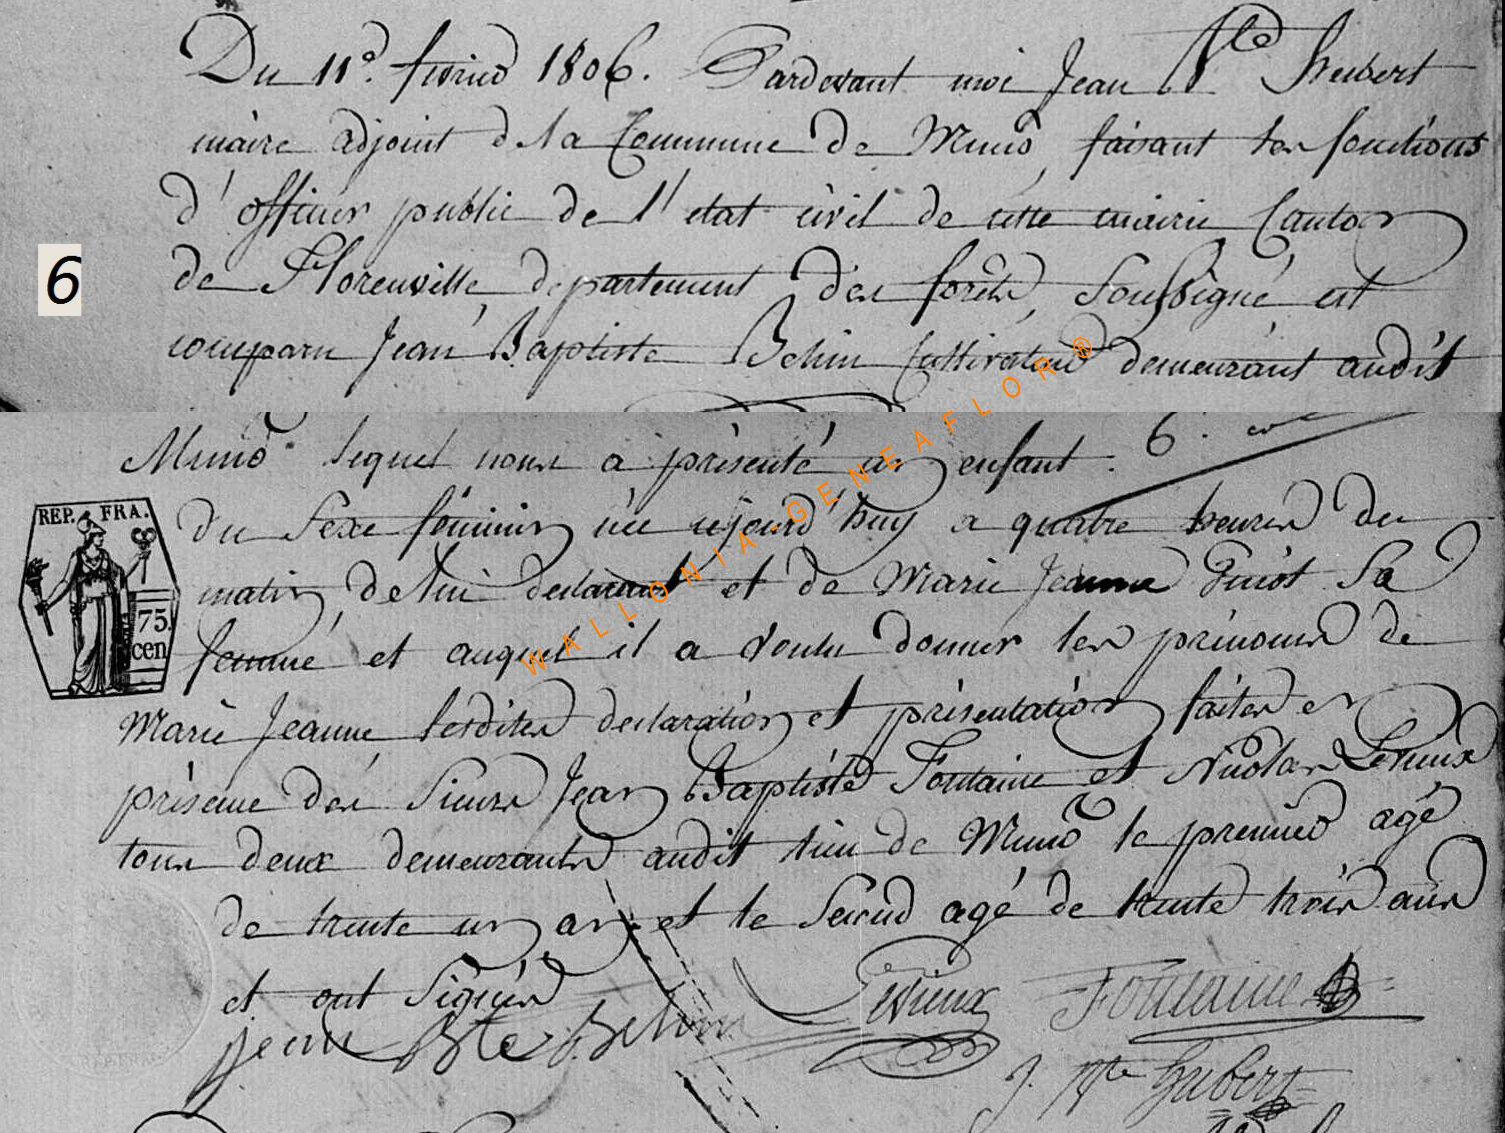 Du 11e. fevrier 1806. Pardevant moi Jean Nle hubert
maire adjoint d la Commune de Muno, faisant les fonctions
d'officier public de l'etat civil de cette mairie Canton
6
de Florenville, departement des forêts, Soussigné est
comparu Jean Baptiste Behin Cultivateur demeurant audit
Muno lequel nous a présenté un enfant.
6.
REP. FRA.
75.
cen
du Sexe féminin née cejourd'huy a quatre heures du
matin, de lui declarant et de Marie Jeanne Guiot Sa
femme et auquel il a voulu donner les prénoms de
Marie Jeanne lesdites declaration et présentation faites en
présence des Sieurs Jean Baptiste Fontaine et Nicolas Lévieux
tous deux demeurants audit lieu de Muno le premier agé
de trente un an et le Second agé de trente trois ans
et ont Signés
jean Bte Behin Lévieux Fontaine
J. Nle hubert
WALLONIA-GENEAFLOR®